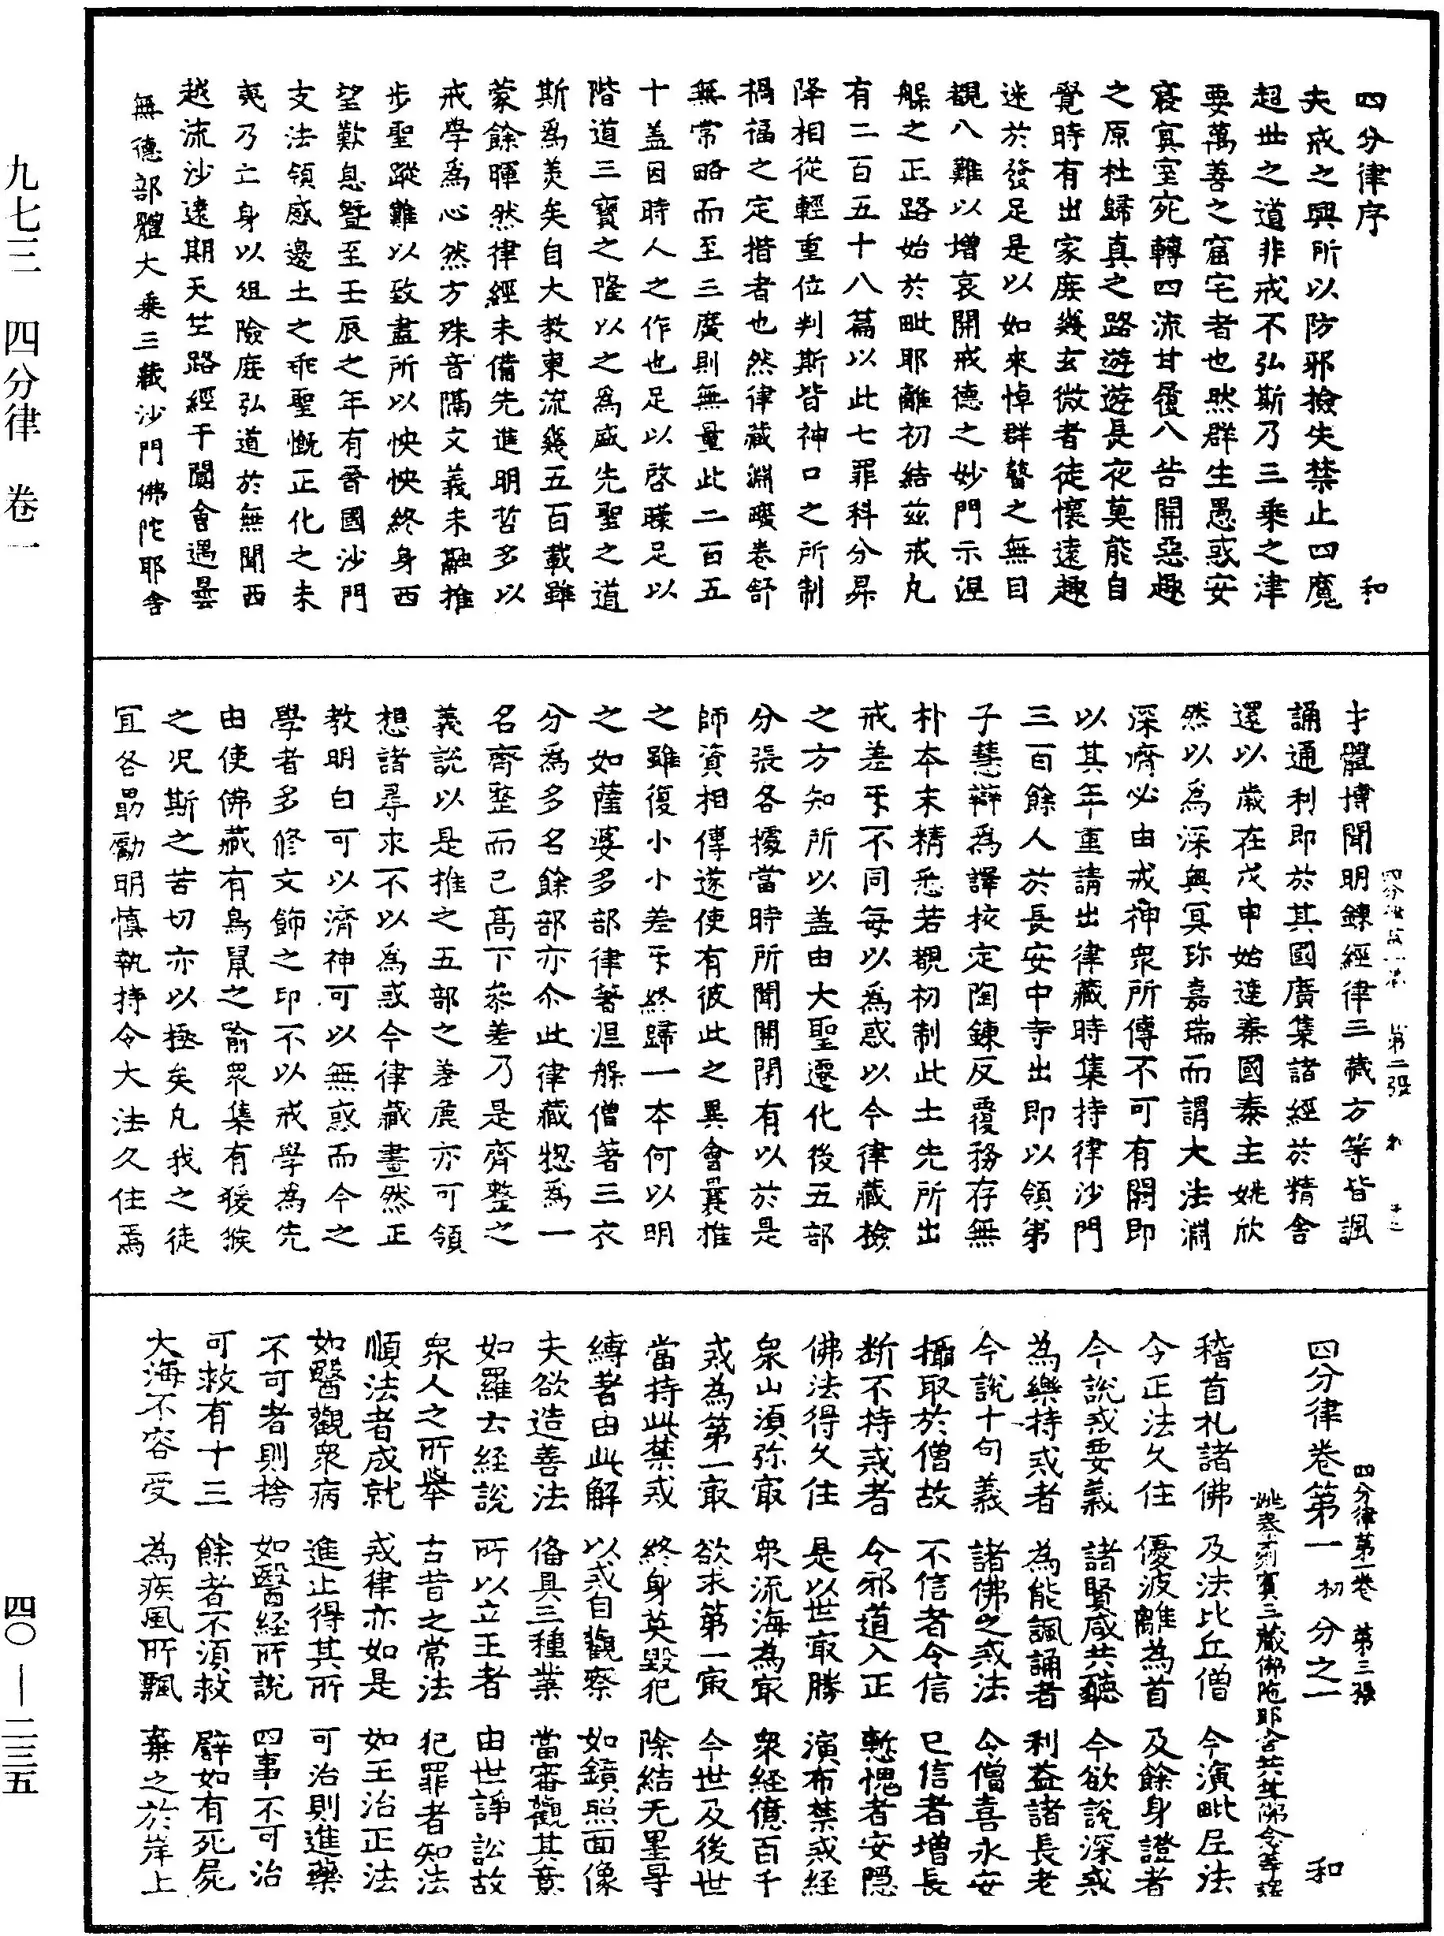 九七三　四分律　卷一
四〇—二三五
四分律序　和
夫戒之興所以防邪撿失禁止四魔
超世之道非戒不弘斯乃三乘之津
要萬善之窟宅者也然群生愚惑安
寢冥室宛轉四流甘履八苦開惡趣
之原杜歸真之路遊遊長夜莫能自
覺時有出家庶幾玄微者徒懷遠趣
迷於發足是以如來悼群瞽之無目
覩八難以增哀開戒德之妙門示涅
槃之正路始於毗耶離初結茲戒凡
有二百五十八篇以此七罪科分昇
降相從輕重位判斯皆神口之所制
禍福之定揩者也然律藏淵曖卷舒
無常略而至三廣則無量此二百五
十盖因時人之作也足以啓矇足以
階道三寶之隆以之為盛先聖之道
斯為美矣自大教東流幾五百載雖
蒙餘暉然律經未備先進明哲多以
戒學為心然方殊音隔文義未融推
步聖蹤難以致盡所以怏怏終身西
望歎息暨至壬辰之年有晉國沙門
支法領感邊土之乖聖慨正化之未
夷乃亡身以俎險庶弘道於無聞西
越流沙遠期天竺路經于闐會遇曇
無德部體大乘三藏沙門佛陀耶舍
才體博聞明鍊經律三藏方等皆諷
誦通利即於其國廣集諸經於精舍
還以歲在戊申始達秦國秦主姚欣
然以為深奧冥珎嘉瑞而謂大法淵
深濟必由戒神衆所傳不可有闕即
以其年重請出律藏時集持律沙門
三百餘人於長安中寺出即以領弟
子慧辯為譯校定陶鍊反覆務存無
朴本末精悉若覩初制此土先所出
戒差乎不同每以為惑以今律藏撿
之方知所以盖由大聖遷化後五部
分張各據當時所聞開閇有以於是
師資相傳遂使有彼此之異會曩推
之雖復小小差乎終歸一本何以明
之如薩婆多部律著涅槃僧著三衣
分為多名餘部亦介此律藏惣為一
名齊整而已高下叅差乃是齊整之
義說以是推之五部之差鹿亦可領
想諸尋求不以為惑今律藏畫然正
教明白可以濟神可以無惑而今之
學者多修文飾之印不以戒學為先
由使佛藏有鳥鼠之喻衆集有猨猴
之况斯之苦切亦以極矣凡我之徒
冝各勗勵明慎執持令大法久住焉
第二張
四分律卷第一　初分之一　和
四分律第一卷　第三張
姚秦罽賓三藏佛陁耶舍共竺佛念等譯
稽首礼諸佛　及法比丘僧　今演毗尼法
令正法久住　優波離為首　及餘身證者
今說戒要義　諸賢咸共聽　今欲說深戒
為樂持戒者　為能諷誦者　利益諸長老
今說十句義　諸佛之戒法　令僧喜永安
攝取於僧故　不信者令信　已信者增長
断不持戒者　令邪道入正　慙愧者安隱
佛法得久住　是以世㝡勝　演布禁戒経
衆山湏弥㝡　衆流海為㝡　衆経億百千
戒為第一㝡　欲求第一㝡　今世及後世
當持此禁戒　終身莫毀犯　除結无罣㝵
縛著由此解　以戒自觀察　如鏡照面像
夫欲造善法　俻具三種業　當審觀其意
如羅云経說　所以立王者　由世諍訟故
衆人之所舉　古昔之常法　犯罪者知法
順法者成就　戒律亦如是　如王治正法
如醫觀衆病　進止得其所　可治則進藥
不可者則捨　如醫経所說　四事不可治
可救有十三　餘者不須救　譬如有死屍
大海不容受　為疾風所飄　棄之於岸上